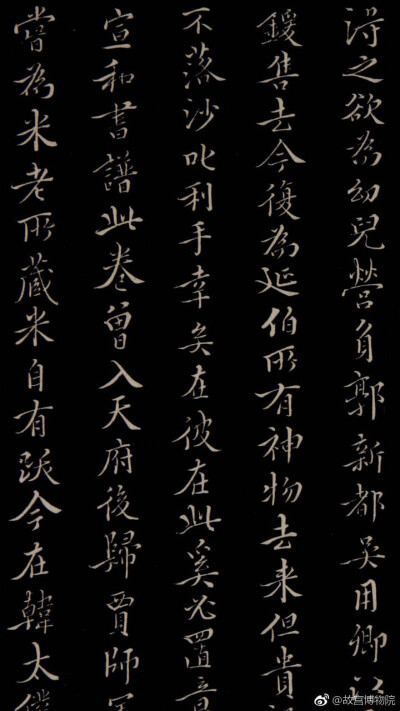 淂之欲為幼兒營負郭新都吳用卿以
鍰售去今復為延伯所有神物去来但貴
不落沙叱利手幸矣在彼在此奚必置意
宣和書譜此卷曾入天府後歸賈師
嘗為米老所藏米自有跋今在韓太僕
@故宫博物院